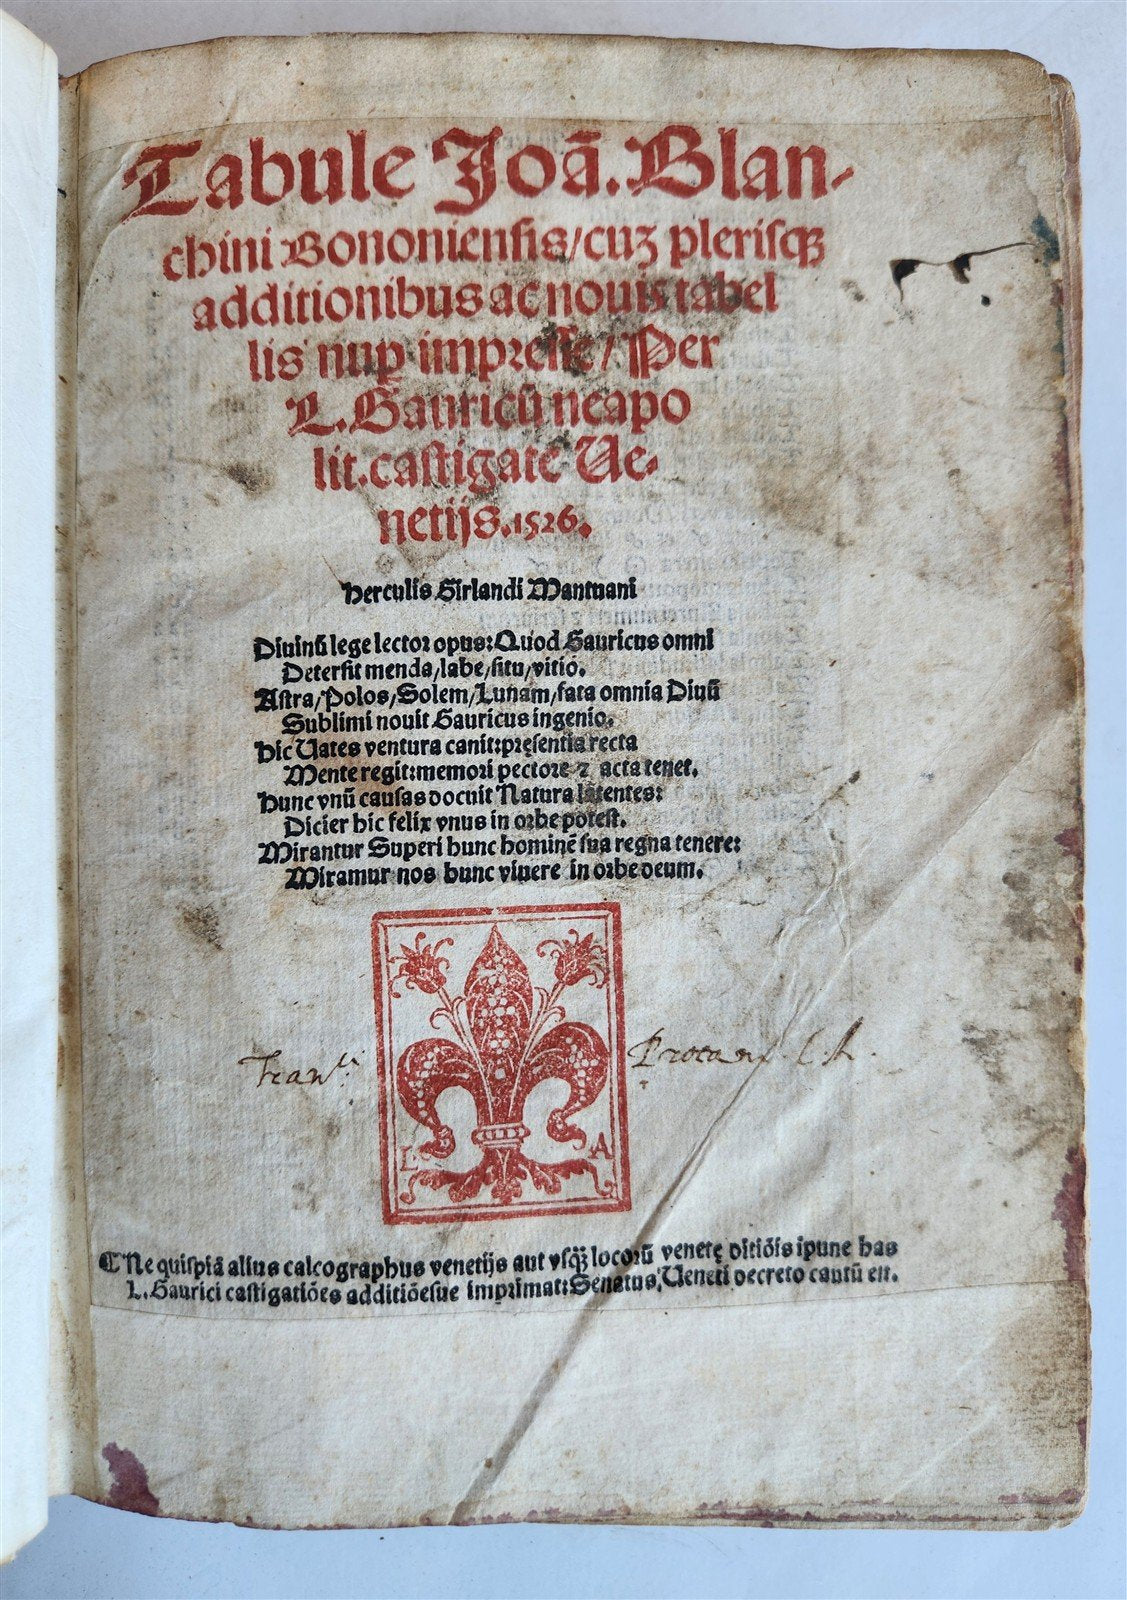 Tabule Joā. Blan-
chini Bononiensis/cuʒ plerisqʒ
additionibus ac nouis tabel
lis nuꝑ impresse/Per
L. Gauricū neapo
lit. castigate Ve-
netijs. 1526.
Herculis Girlandi Mantuani
Diuinū lege lector opus: Quod Gauricus omni
Detersit menda/labe/situ/vitio.
Astra/Polos/Solem/Lunam/fata omnia Diuū
Sublimi nouit Gauricus ingenio.
Hic Uates ventura canit: pręsentia recta
Mente regit: memori pectore ⁊ acta tenet.
Hunc vnū causas docuit Natura latentes:
Dicier hic felix vnus in orbe potest.
Mirantur Superi hunc hominē sua regna tenere:
Miramur nos hunc viuere in orbe deum.
Fran.ci Protani
L A
¶ Ne quispiā alius calcographus venetijs aut vsqʒ locorū venetę ditiōis ipune has
L. Gaurici castigatiōes additiōesue imprimat: Senatus Ueneti decreto cautū est.